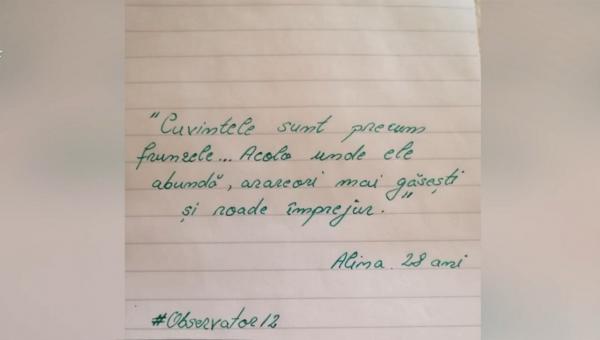 "Cuvintele sunt precum
frunzele... Acolo unde ele
abundă, arareori mai găsești
și roade împrejur."
Alina. 28 ani
#Observator12